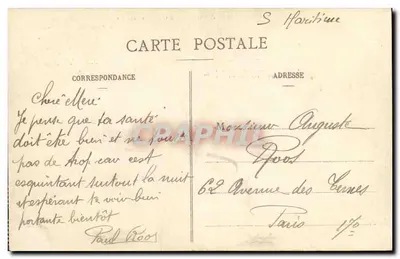 S Maritime
CARTE POSTALE
CORRESPONDANCE
ADRESSE
Chère Mère
Je pense que ta santé
doit être bien et ne
pas de trop car c'est
esquintant surtout la nuit
et espérant te voir bien
portante bientôt
Paul Roos
Monsieur Auguste
Roos
62 Avenue des Ternes
Paris 17e